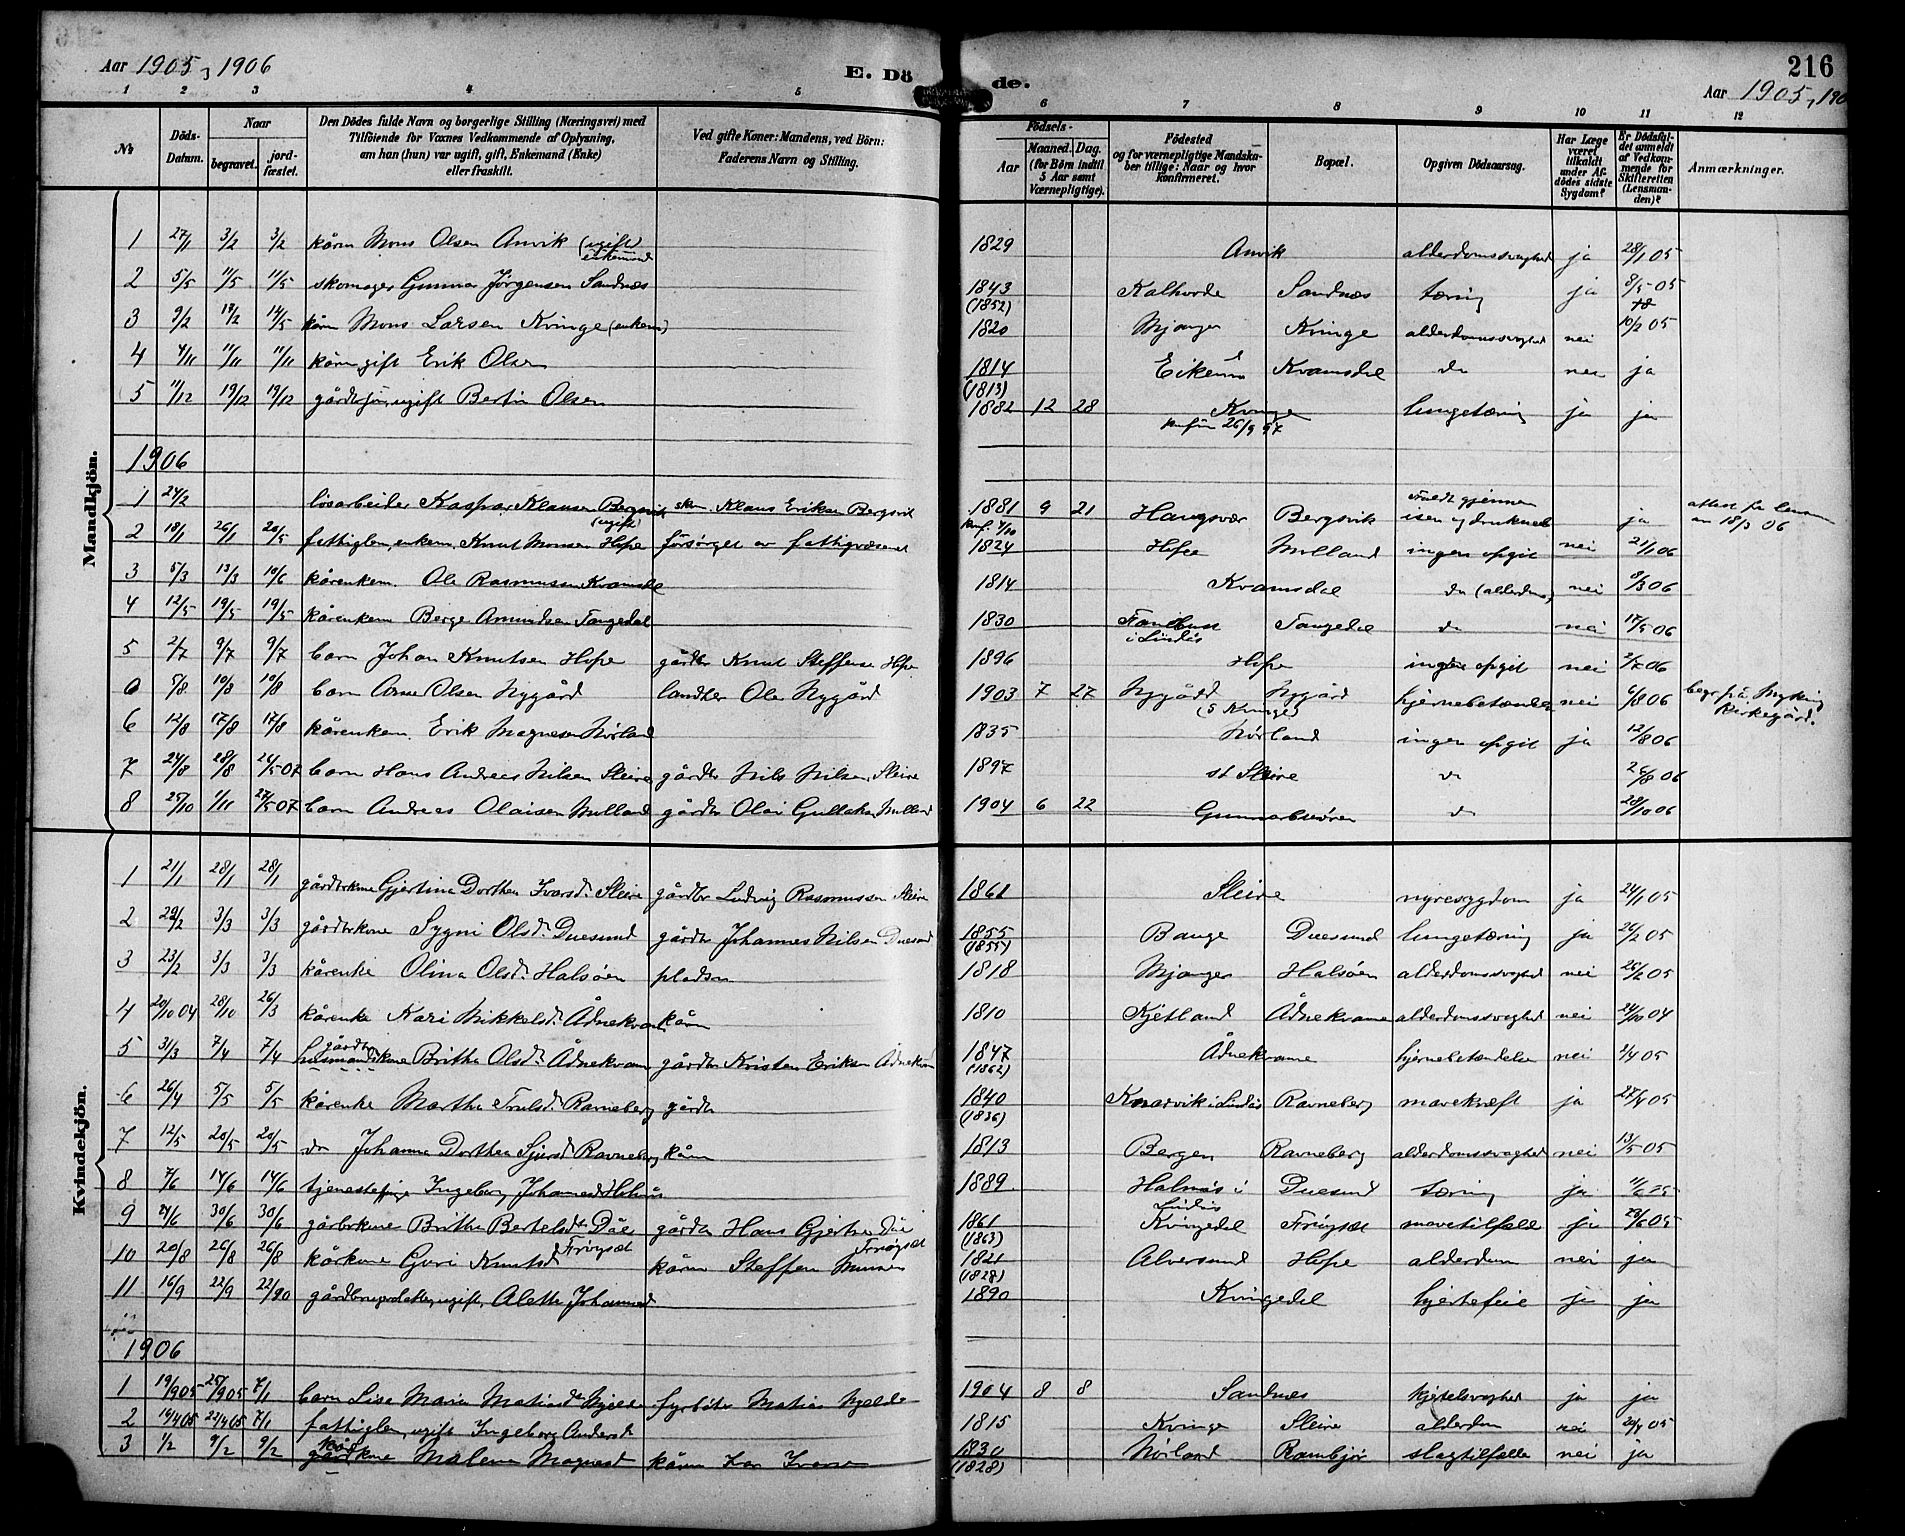 Aar 1905, 1906
E. Dö
de.
216
Aar 1905, 190
1 2 3 4 5 6 7 8 9 10 11 12
№ Döds-Datum. Naar begravet. jord-fæstet. Den Dödes fulde Navn og borgerlige Stilling (Næringsvei) med Tilföiende for Voxnes Vedkommende af Oplysning, om han (hun) var ugift, gift, Enkemand (Enke) eller fraskilt. Ved gifte Koner: Mandens, ved Börn: Faderens Navn og Stilling. Födsels- Aar Maaned. Dag. (for Börn indtil 5 Aar samt Værnepligtige). Födested og for værnepligtige Mandska-ber tillige: Naar og hvor konfirmeret. Bopæl. Opgiven Dödsaarsag. Har Læge været tilkaldt under Af-dödes sidste Sygdom? Er Dödsfal-det anmeldt af Vedkom-mende for Skifteretten (Lensman-den)? Anmærkninger.
Mandkjön.
1 27/1 3/2 3/2 kårm Mons Olsen Anvik (ugift enkemand 1829 Anvik alderdomssvaghed ja 28/1 05
2 5/5 11/5 11/5 skomager Gunnar Jørgensen Sandnæs 1843 (1852) Kalhovde Sandnæs tæring ja 8/5 05
3 9/2 14/5 kårm Mons Larsen Kvinge (enkem) 1820 Mjanger Kvinge alderdomssvaghed nei 10/2 05
4 4/11 11/11 11/11 kårm gift Erik Olsen 1814 (1813) Kvamsdal do nei ja
5 11/12 19/12 19/12 ugift Bertin Olsen 1882 12 28 Kvinge konfirm 26/9 97 lungetæring ja ja
1906
1 24/2 løsarbeider Kaspar Klausen Bergsvik (ugift) Klaus Eriksen Bergsvik 1881 9 21 Haugsvær Bergsvik gjennem isen og druknede ja attest fra lensm an 18/3 06
2 18/1 26/1 20/5 fattiglem, enkem. Knut Monsen Hope forsørget av fattigvæsenet 1824 Hope Molland ingen opgit nei 21/1 06
3 5/3 13/3 10/6 kårenkem. Ole Rasmussen Kvamsdal 1814 Kvamsdal do (alderdom) nei 8/3 06
4 12/5 19/5 19/5 kårenkem Berge Amundsen Tangedal 1830 i Lindås Tangedal do nei 17/5 06
5 2/7 9/7 9/7 barn Johan Knutsen Hope gårdbr Knut Steffensen Hope 1896 Hope ingen opgit nei 2/7 06
6 5/8 10/8 10/8 barn Arne Olsen Nygård landhdl Ole Nygård 1903 7 27 Nygård (s Kvinge) Nygård hjernebetændelse nei 6/8 06 begr på kirkegård.
6 12/8 17/8 17/8 kårenkem. Erik Magnesen Nørland 1835 Nørland ingen opgit ja 12/8 06
7 24/8 28/8 26/5 07 barn Hans Andreas Nilsen Sleire gårdbr Nils Nilsen Sleire 1897 st Sleire do 26/8 06
8 25/10 1/11 27/5 07 barn Andreas Olaisen Molland gårdbr Olai Gullaksen Molland 1904 6 22 do 28/10 06
Kvindekjön.
1 21/1 28/1 28/1 gårdbrkone Gjertina Dorthea Ivarsdr. Sleire gårdbr Ludvig Rasmussen Sleire 1861 Sleire nyresygdom ja 24/1 05
2 22/2 3/3 3/3 gårdbrkone Sygni Olsdr. Duesund gårdbr Johannes Nilsen Duesund 1855 (1855) Bauge Duesund lungetæring ja 26/2 05
3 23/2 3/3 3/3 kårenke Olina Olsdr. Halsøen pladsm 1818 Mjanger Halsøen alderdomssvaghed nei 26/2 05
4 20/10 04 28/10 26/3 kårenke Kari Mikkelsdr. Ådnekvam kårm 1810 Kjetland Ådnekvame alderdomssvaghed nei 24/10 04
5 31/3 7/4 7/4 husmandskone gårdbr Brithe Olsdr. Ådnekvam gårdbr Kristen Eriksen Ådnekvam 1847 (1862) Ådnekvame hjernebetændelse nei 2/4 05
6 26/4 5/5 5/5 kårenke Marthe Trulsdr. Ravneberg gårdbr 1840 (1836) Knarvik i Lindås Ravneberg mavekræft ja 27/4 05
7 12/5 20/5 20/5 do Johanna Dorthea Sjursdr. Ravneberg kårm 1813 Bergen Ravneberg alderdomssvaghed nei 13/5 05
8 7/6 14/6 14/6 tjenestepige Ingeborg Johannesdr 1889 Holmås i Lindås Duesund tæring ja 11/6
9 24/6 30/6 30/6 gårdbrkone Brithe Bertelsdtr Dåe Frøyset gårdbr Hans Gjertsen Dåe Frøyset 1861 (1863) Kvingedal Frøyset mavetilfælle ja 28/6 05
10 20/8 26/8 26/8 kårkone Guri Knutsd kårm Steffen Monsen 1821 (1828) Alversund Hope alderdom nei ja
11 16/9 22/9 22/90 ugift, Alette Johannesd 1890 Kvingedal hjertefeil ja ja
1906
1 19/9 05 25/9 05 7/1 barn Lise Marie Matiasdtr Mjelde fyrbøter Matias Mjelde 1904 8 8 Sandnæs hjertesvaghed ja ja
2 14/4 05 22/4 05 7/1 fattiglem, ugift Ingeborg Andersd 1815 Kvinge Sleire alderdom nei 20/4 05
3 1/2 9/2 9/2 gårdkone kår Malene Magnesd kårm Iver Iversen 1830 (1828) Nørland Rambjør slagtilfælle nei ja